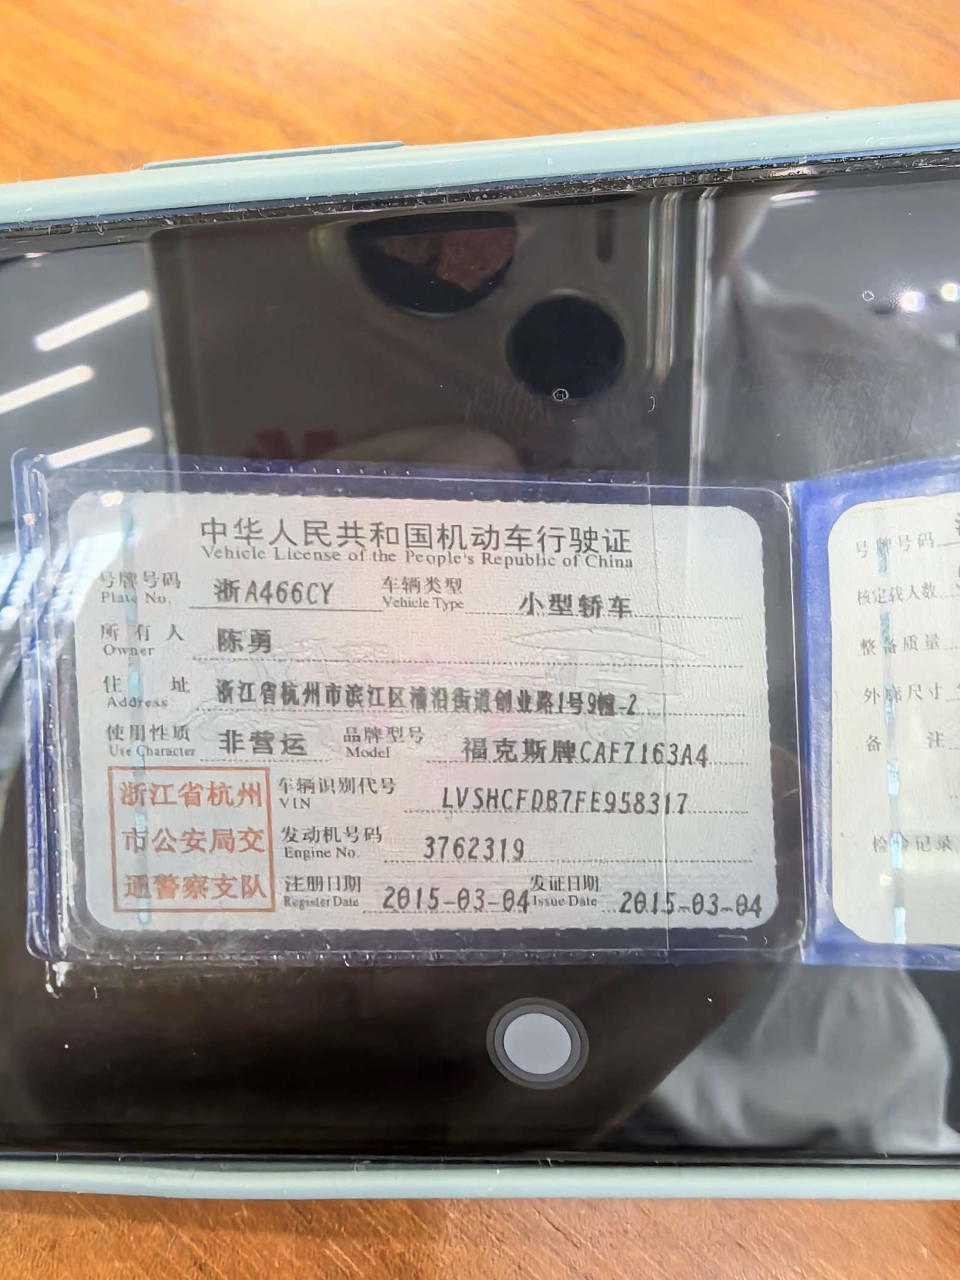 中华人民共和国机动车行驶证
Vehicle License of the People's Republic of China
号牌号码 浙A466CY 车辆类型 小型轿车
Plate No. Vehicle Type
所有人 陈勇
Owner
住址 浙江省杭州市滨江区浦沿街道创业路1号9幢-2
Address
使用性质 非营运 品牌型号 福克斯牌CAF7163A4
Use Character Model
浙江省杭州
市公安局交
通警察支队
车辆识别代号 LVSHCFDB7FE958317
VIN
发动机号码 3762319
Engine No.
注册日期 2015-03-04 发证日期 2015-03-04
Register Date Issue Date
号牌号码
核定载人数
整备质量
外廓尺寸
备注
检验记录